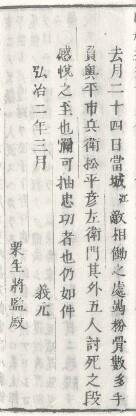 去月二十四日當城江敵相働之處竭粉骨數多手
負奧平市兵衛松平彥左衛門其外五人討死之段
感悅之至也彌可抽忠功者也仍如件
弘治二年三月　　　義元
粟生將監殿